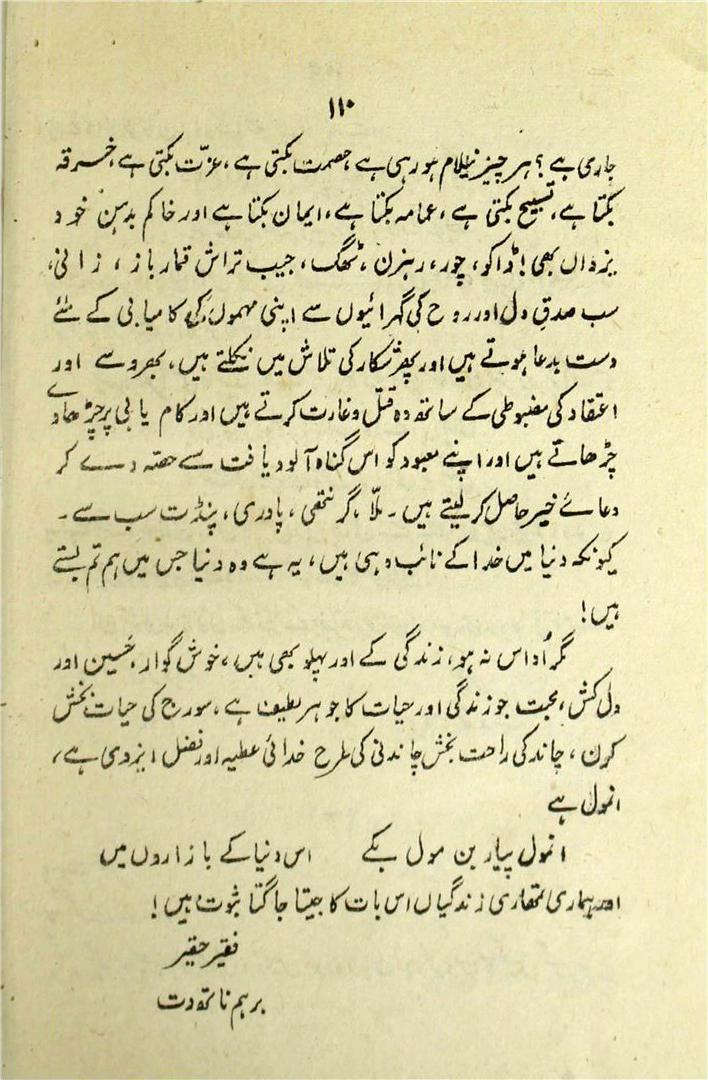 ۱۱۰
جاری ہے؟ ہر چیز نیلام ہو رہی ہے عصمت بکتی ہے، عزّت بکتی ہے، خرقہ
بکتا ہے، تسبیح بکتی ہے، عمامہ بکتا ہے، ایمان بکتا ہے اور خاکم بدہن خود
یزداں بھی! ڈاکو، چور، رہزن، ٹھگ، جیب تراش قمار باز، زانی،
سب صدقِ دل اور روح کی گہرائیوں سے اپنی مہموں کی کامیابی کے لئے
دست بدعا ہوتے ہیں اور پھر شکار کی تلاش میں نکلتے ہیں، بھروسے اور
اعتقاد کی مضبوطی کے ساتھ وہ قتل و غارت کرتے ہیں اور کام یابی پر چڑھاوے
چڑھاتے ہیں اور اپنے معبود کو اس گناہ آلود یافت سے حصّہ دے کر
دعائے خیر حاصل کر لیتے ہیں۔ ملّا، گرنتھی، پادری، پنڈت سب سے۔
کیونکہ دنیا میں خدا کے نائب وہی ہیں، یہ ہے وہ دنیا جس میں ہم تم بستے
ہیں!
مگر اُداس نہ ہو، زندگی کے اور پہلو بھی ہیں، خوش گوار، حَسین اور
دل کش، محبت جو زندگی اور حیات کا جوہرِ لطیف ہے، سورج کی حیات بخش
کرن، چاند کی راحت بخش چاندنی کی طرح خدائی عطیہ اور فضل ایزدی ہے،
انمول ہے
انمول پیار بن مول بکے اس دنیا کے بازاروں میں
اور ہماری تمھاری زندگیاں اس بات کا جیتا جاگتا ثبوت ہیں!
فقیر حقیر
برہم ناتھ دت